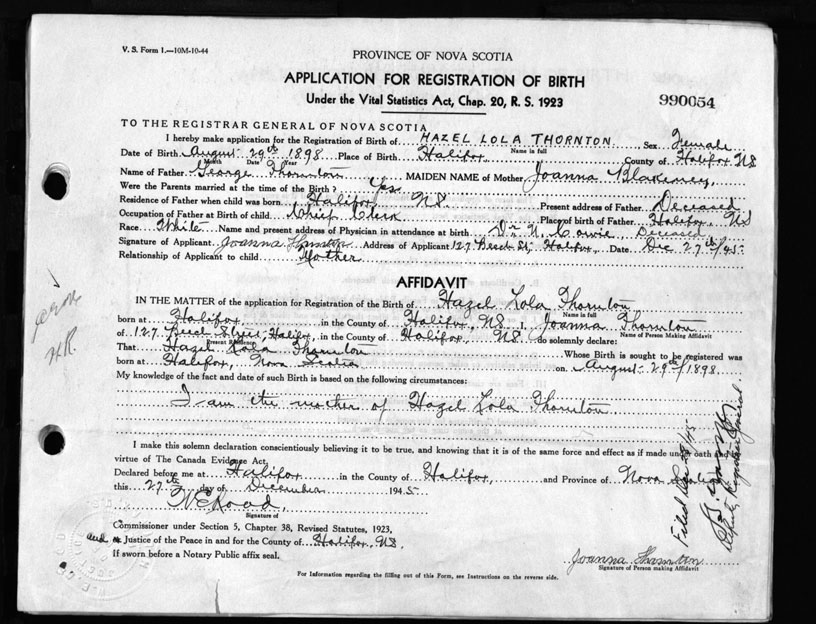 V. S. Form 1.—10M-10-44
PROVINCE OF NOVA SCOTIA
APPLICATION FOR REGISTRATION OF BIRTH
Under the Vital Statistics Act, Chap. 20, R. S. 1923
990054
TO THE REGISTRAR GENERAL OF NOVA SCOTIA
I hereby make application for the Registration of Birth of HAZEL LOLA THORNTON, Sex Female
Name in full
Date of Birth August 29th 1898 Place of Birth Halifax County of Halifax NS
Month Date Year
Name of Father George Thornton MAIDEN NAME of Mother Joanna Blakeney
Were the Parents married at the time of the Birth? Yes
Residence of Father when child was born Halifax NS Present address of Father Deceased
Occupation of Father at Birth of child Chief Clerk Place of birth of Father Halifax, NS
Race White Name and present address of Physician in attendance at birth Dr. N. Cowie, Deceased
Signature of Applicant Joanna Thornton Address of Applicant 127 Beech St, Halifax, Date Dec 27th/45
Relationship of Applicant to child Mother
AFFIDAVIT
IN THE MATTER of the application for Registration of the Birth of Hazel Lola Thornton
Name in full
born at Halifax in the County of Halifax, NS I, Joanna Thornton
Name of Person Making Affidavit
of 127 Beech Street, Halifax, in the County of Halifax, NS do solemnly declare:
Present Residence
That Hazel Lola Thornton Whose Birth is sought to be registered was
born at Halifax, Nova Scotia on August 29th/1898
My knowledge of the fact and date of such Birth is based on the following circumstances:
I am the mother of Hazel Lola Thornton
I make this solemn declaration conscientiously believing it to be true, and knowing that it is of the same force and effect as if made under oath and by
virtue of The Canada Evidence Act.
Declared before me at Halifax in the County of Halifax, and Province of Nova Scotia
this 27th day of December 1945
Signature of
Commissioner under Section 5, Chapter 38, Revised Statutes, 1923,
and or Justice of the Peace in and for the County of Halifax NS.
If sworn before a Notary Public affix seal.
Joanna Thornton
Signature of Person making Affidavit
For Information regarding the filling out of this Form, see Instructions on the reverse side.
Filed Dec
Deputy Registrar General